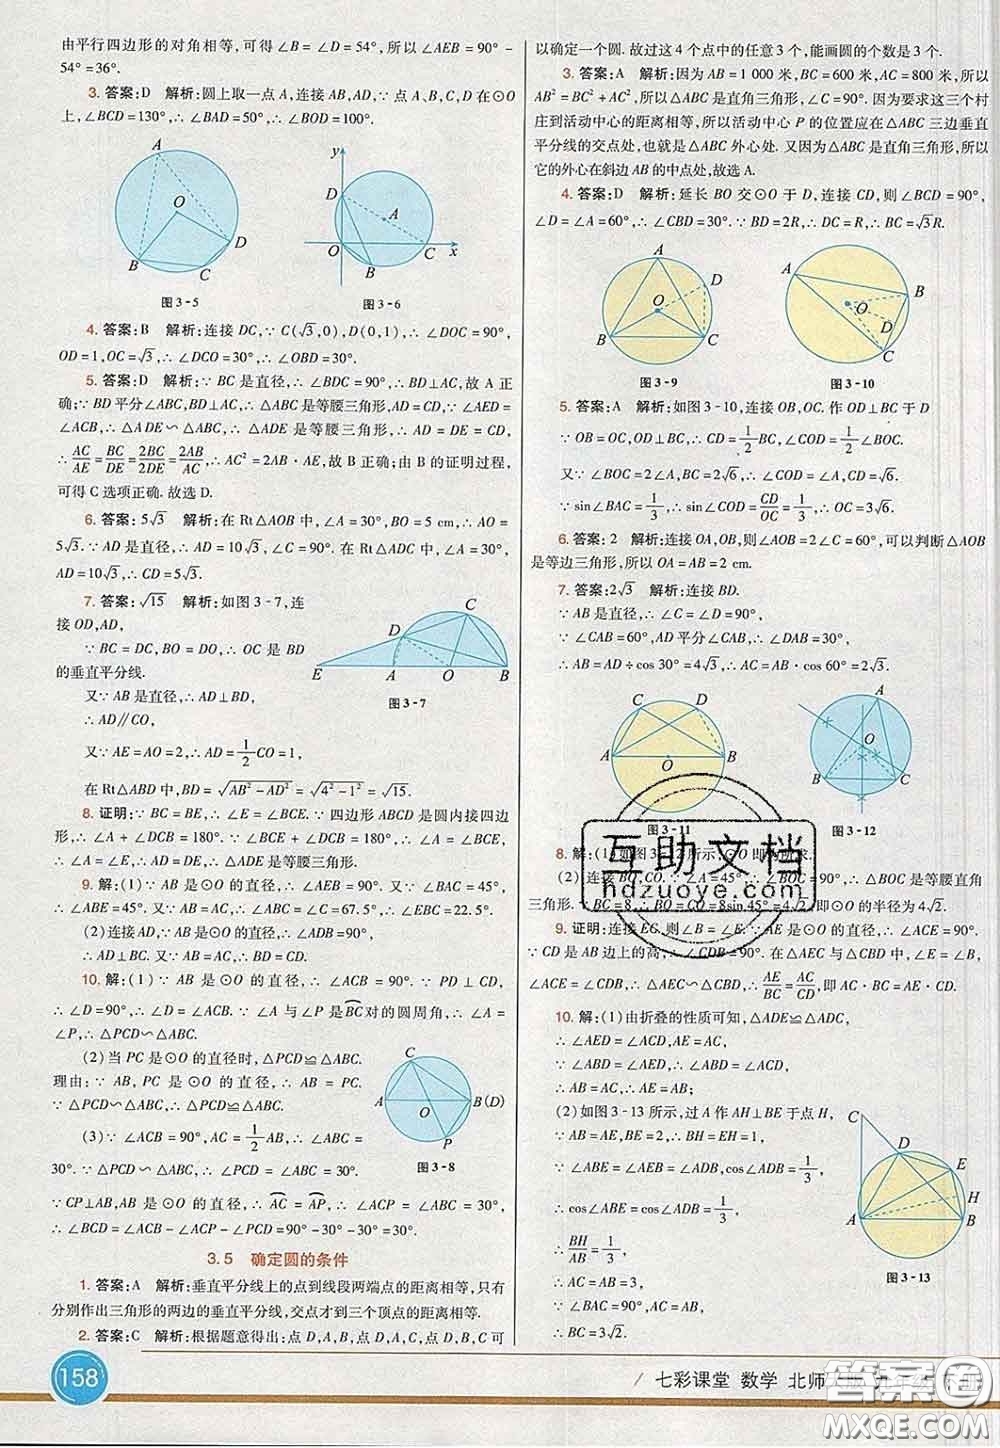 由平行四边形的对角相等,可得∠B=∠D=54°,所以∠AEB=90°-
54°=36°.
3. 答案:D 解析:圆上取一点A,连接AB,AD,∵点A、B、C、D在⊙O
上,∠BCD=130°,∴∠BAD=50°,∴∠BOD=100°.
A
O
B
C
D
图3-5
y
D
A
O
B
C
x
图3-6
4. 答案:B 解析:连接DC,∵C(√3,0),D(0,1),∴∠DOC=90°,
OD=1,OC=√3,∴∠DCO=30°,∴∠OBD=30°.
5. 答案:D 解析:∵BC是直径,∴∠BDC=90°,∴BD⊥AC,故A正
确;∵BD平分∠ABC,BD⊥AC,∴△ABC是等腰三角形,AD=CD,∵∠AED=
∠ACB,∴△ADE∽△ABC,∴△ADE是等腰三角形,∴AD=DE=CD,
∴AC/AE=BC/DE=2BC/2DE=2AB/AC,∴AC²=2AB·AE,故B正确;由B的证明过程,
可得C选项正确.故选D.
6. 答案:5√3 解析:在Rt△AOB中,∠A=30°,BO=5 cm,∴AO=
5√3.∵AD是直径,∴AD=10√3,∴∠C=90°.∴在Rt△ADC中,∠A=30°,
AD=10√3,∴CD=5√3.
7. 答案:√15 解析:如图3-7,连
接OD,AD,
∵BC=DC,BO=DO,∴OC是BD
的垂直平分线.
又∵AB是直径,∴AD⊥BD,
∴AD∥CO,
又∵AE=AO=2,∴AD=1/2CO=1,
在Rt△ABD中,BD=√(AB²-AD²)=√(4²-1²)=√15.
C
D
E
A
O
B
图3-7
8. 证明:∵BC=BE,∴∠E=∠BCE.∵四边形ABCD是圆内接四边
形,∴∠A+∠DCB=180°.∵∠BCE+∠DCB=180°,∴∠A=∠BCE,
∴∠A=∠E,∴AD=DE,∴△ADE是等腰三角形.
9. 解:(1)∵AB是⊙O的直径,∴∠AEB=90°.又∵∠BAC=45°,
∴∠ABE=45°.又∵AB=AC,∴∠ABC=∠C=67.5°,∴∠EBC=22.5°.
(2)连接AD,∵AB是⊙O的直径,∴∠ADB=90°,
∴AD⊥BC.又∵AB=AC,∴BD=CD.
10. 解:(1)∵AB是⊙O的直径,∴∠ACB=90°.∵PD⊥CD,
∴∠D=90°,∴∠D=∠ACB.∵∠A与∠P是BC对的圆周角,∴∠A=
∠P,∴△PCD∽△ABC.
(2)当PC是⊙O的直径时,△PCD≌△ABC.
理由:∵AB,PC是⊙O的直径,∴AB=PC.
∵△PCD∽△ABC,∴△PCD≌△ABC.
(3)∵∠ACB=90°,AC=1/2AB,∴∠ABC=
30°.∵△PCD∽△ABC,∴∠PCD=∠ABC=30°.
∵CP⊥AB,AB是⊙O的直径,∴AC=AP,∴∠ACP=∠ABC=30°,
∴∠BCD=∠ACB-∠ACP-∠PCD=90°-30°-30°=30°.
C
A
O
B(D)
P
图3-8
3.5 确定圆的条件
1. 答案:A 解析:垂直平分线上的点到线段两端点的距离相等,只有
分别作出三角形的两边的垂直平分线,交点才到三个顶点的距离相等.
2. 答案:C 解析:根据题意得出:点D,A,B,点D,A,C,点D,B,C可
以确定一个圆.故过这4个点中的任意3个,能画圆的个数是3个.
3. 答案:A 解析:因为AB=1 000米,BC=600米,AC=800米,所以
AB²=BC²+AC²,所以△ABC是直角三角形,∠C=90°.因为要求这三个村
庄到活动中心的距离相等,所以活动中心P的位置应在△ABC三边垂直
平分线的交点处,也就是△ABC外心处.又因为△ABC是直角三角形,所以
它的外心在斜边AB的中点处,故选A.
4. 答案:D 解析:延长BO交⊙O于D,连接CD,则∠BCD=90°,
∠D=∠A=60°,∴∠CBD=30°.∵BD=2R,∴DC=R,∴BC=√3R.
A
D
O
B
C
图3-9
A
B
O
D
C
图3-10
5. 答案:A 解析:如图3-10,连接OB,OC.作OD⊥BC于D
∵OB=OC,OD⊥BC,∴CD=1/2BC,∠COD=1/2∠BOC.
又∵∠BOC=2∠BAC,BC=2√6,∴∠COD=∠BAC,CD=√6.
∵sin∠BAC=1/3,∴sin∠COD=CD/OC=1/3,∴OC=3√6.
6. 答案:2 解析:连接OA,OB,则∠AOB=2∠C=60°,可以判断△AOB
是等边三角形,所以OA=AB=2 cm.
7. 答案:2√3 解析:连接BD.
∵AB是直径,∴∠C=∠D=90°,
∵∠CAB=60°,AD平分∠CAB,∴∠DAB=30°,
∴AB=AD÷cos 30°=4√3,∴AC=AB·cos 60°=2√3.
C
D
A
O
B
图3-11
A
O
B
C
图3-12
8. 解:(1)如图3-12所示,⊙O即为所求.
(2)连接BO,CO.∵∠A=45°,∴∠BOC=90°,∴△BOC是等腰直角
三角形.∵BC=8,∴BO=CO=8sin 45°=4√2,即⊙O的半径为4√2.
9. 证明:连接EC,则∠B=∠E.∵AE是⊙O的直径,∴∠ACE=90°.
∵CD是AB边上的高,∴∠CDB=90°.在△AEC与△CBD中,∠E=∠B,
∠ACE=∠CDB,∴△AEC∽△CBD,∴AE/BC=AC/CD,即AC·BC=AE·CD.
10. 解:(1)由折叠的性质可知,△ADE≌△ADC,
∴∠AED=∠ACD,AE=AC,
∵∠ABD=∠AED,∴∠ABD=∠ACD,
∴AB=AC,∴AE=AB;
(2)如图3-13所示,过A作AH⊥BE于点H,
∵AB=AE,∴BH=EH=1,
∵∠ABE=∠AEB=∠ADB,cos∠ADB=1/3,
∴cos∠ABE=cos∠ADB=1/3,
∴BH/AB=1/3,
∴AC=AB=3,
∵∠BAC=90°,AC=AB,
∴BC=3√2.
C
D
E
H
A
B
图3-13
互助文档
hdzuoye.com
158
七彩课堂 数学 北师
答案圈
MXQE.COM